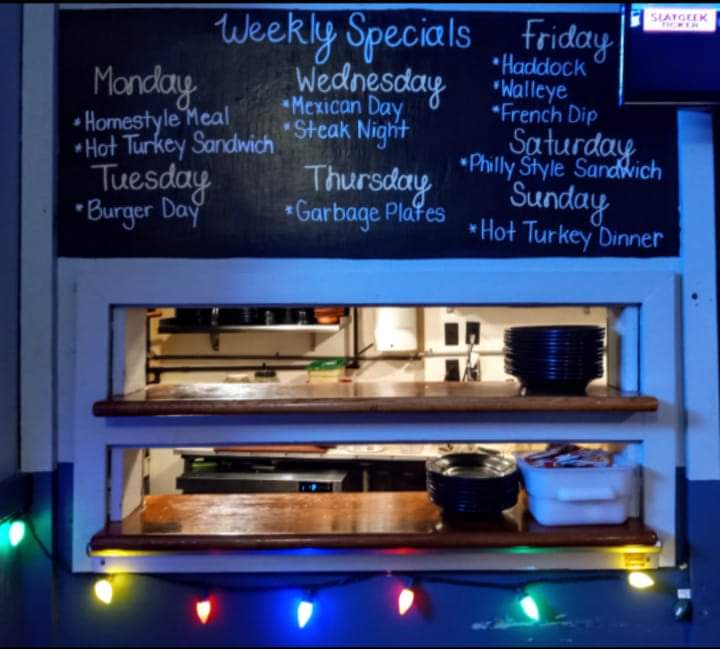 Weekly Specials
Monday
*Homestyle Meal
*Hot Turkey Sandwich
Tuesday
*Burger Day
Wednesday
*Mexican Day
*Steak Night
Thursday
*Garbage Plates
Friday
*Haddock
*Walleye
*French Dip
Saturday
*Philly Style Sandwich
Sunday
*Hot Turkey Dinner
SEATGEEK